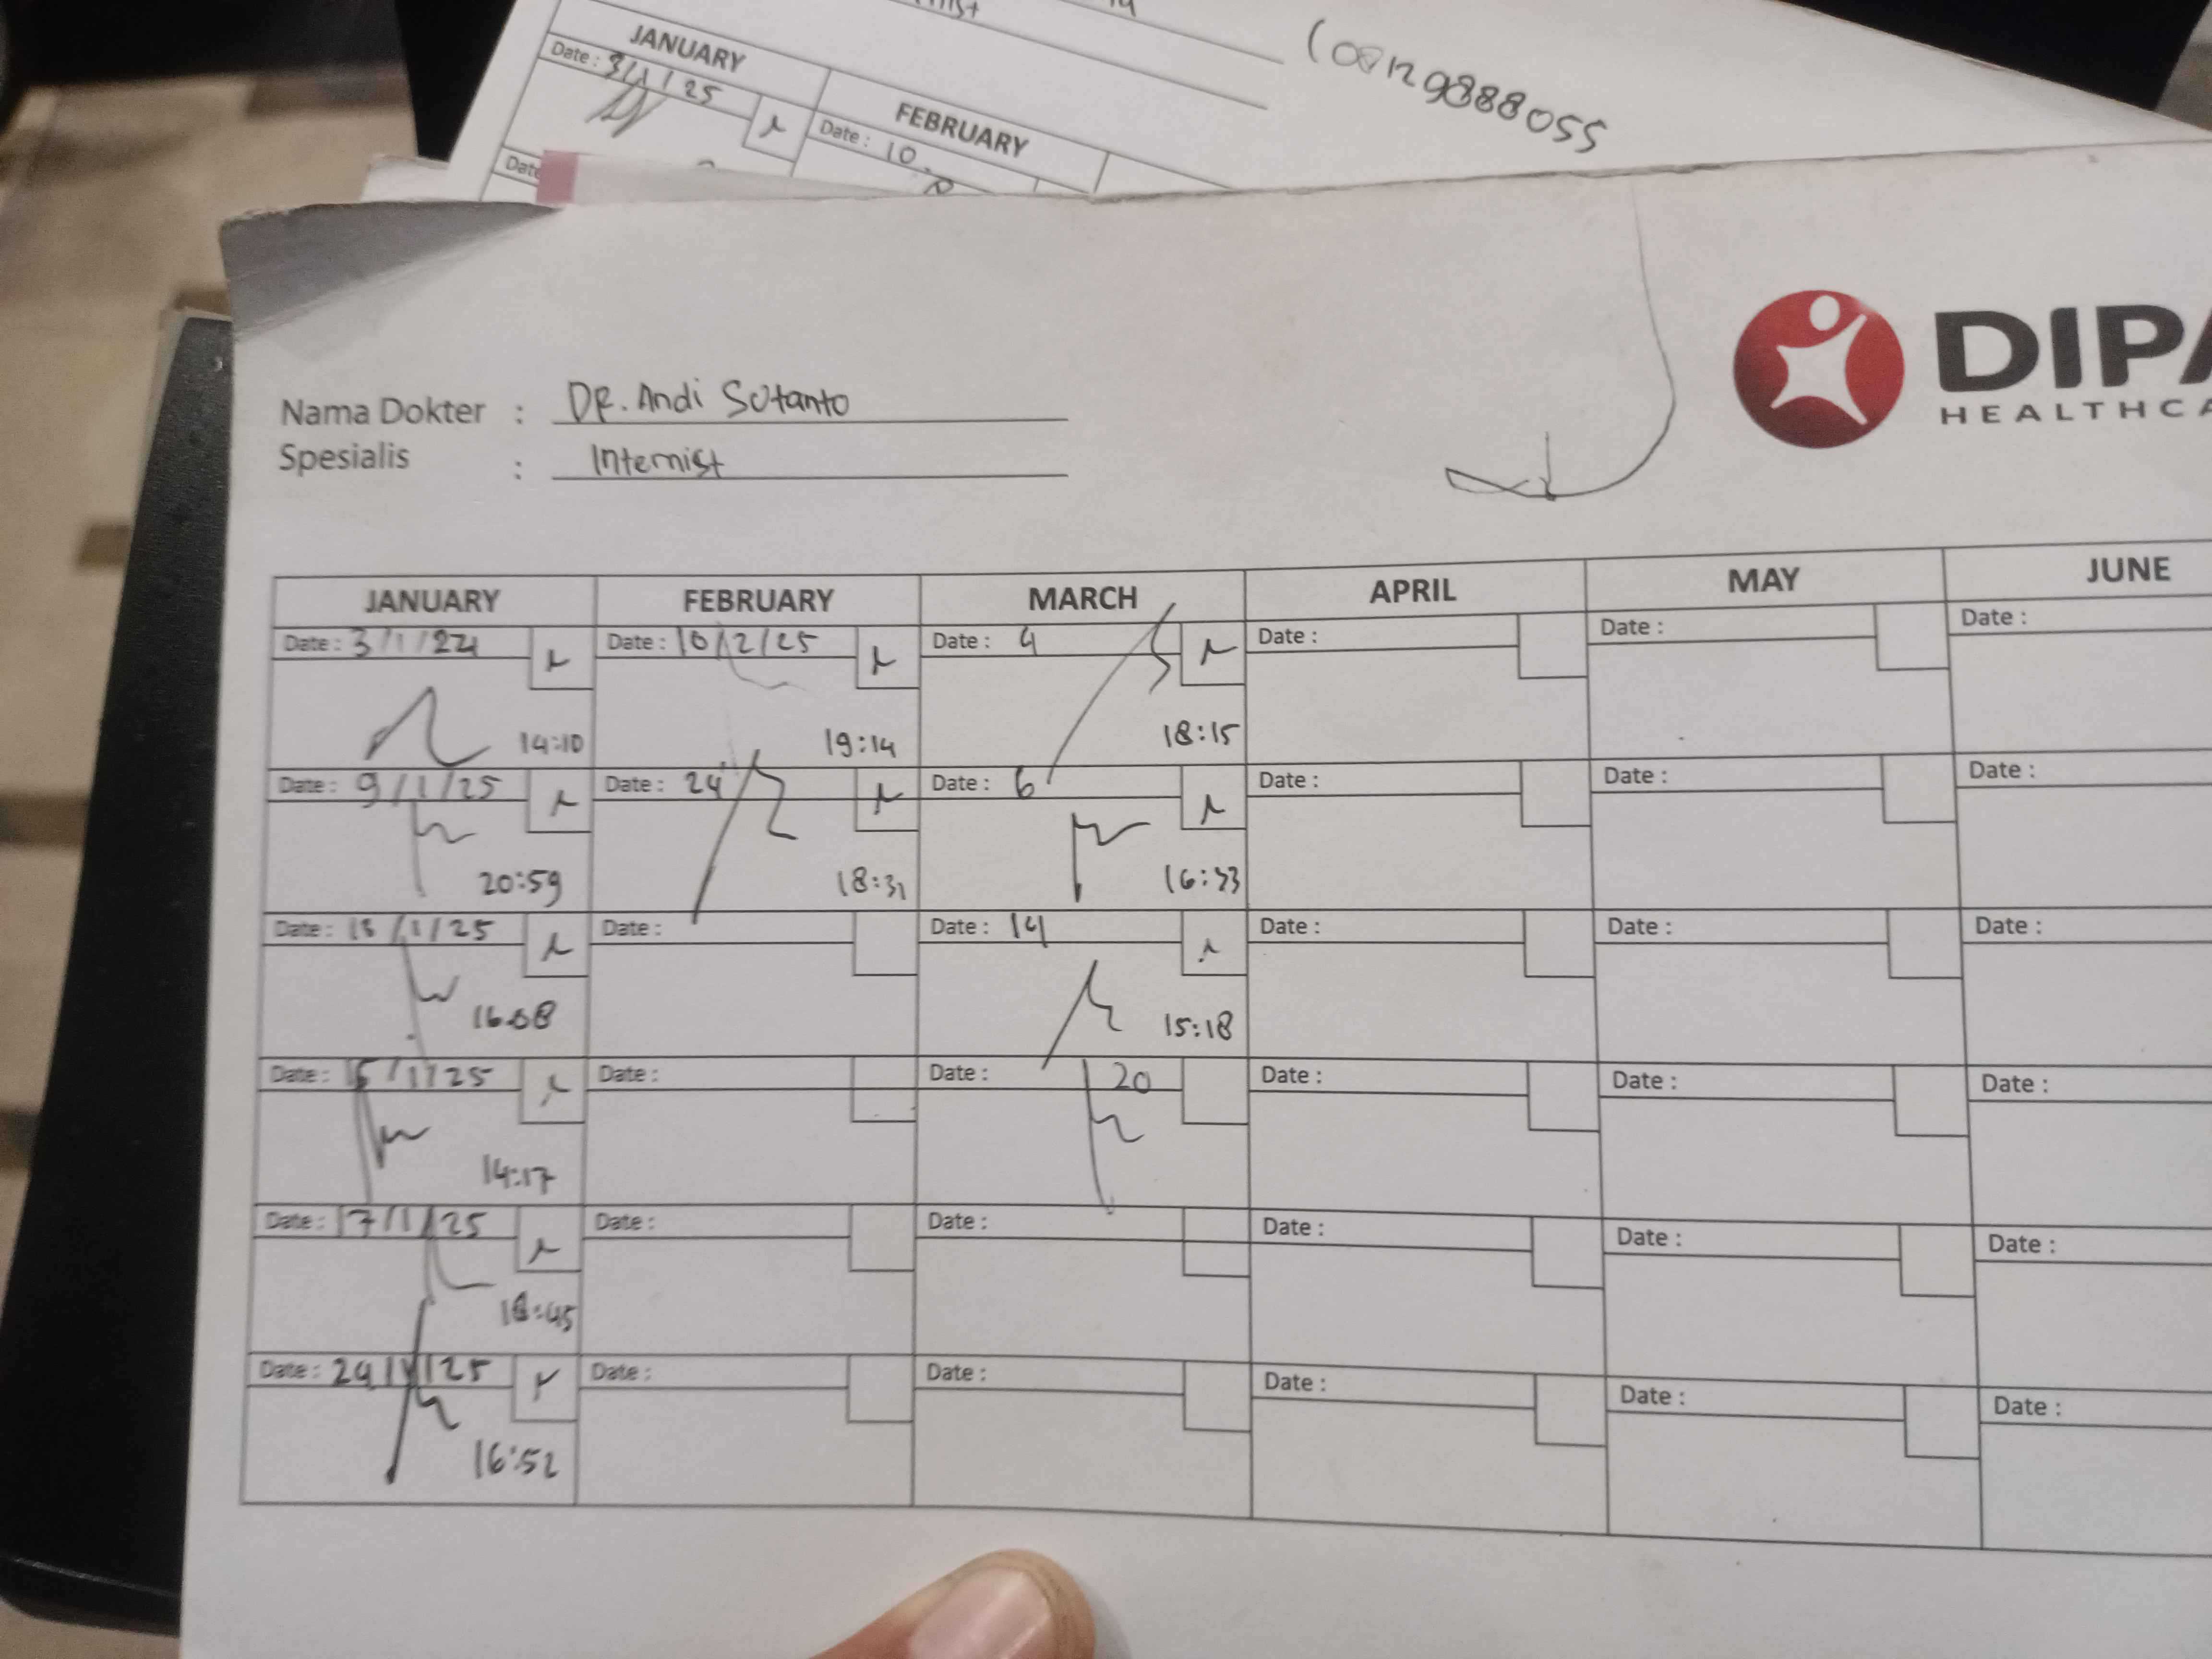 JANUARY
FEBRUARY
Date : 3/1/25
Date : 10
(08129888055
DIPA
HEALTHCA
Nama Dokter : DR. Andi Sutanto
Spesialis : Internist
JANUARY FEBRUARY MARCH APRIL MAY JUNE
Date : 3/1/24 Date : 10/2/25 Date : 4 Date : Date : Date :
14:10 19:14 18:15
Date : 9/1/25 Date : 24 Date : 6 Date : Date : Date :
20:59 18:31 16:33
Date : 13/1/25 Date : Date : 14 Date : Date : Date :
16:08 15:18
Date : 15/1/25 Date : Date : 20 Date : Date : Date :
14:17
Date : 17/1/25 Date : Date : Date : Date : Date :
18:45
Date : 24/1/25 Date : Date : Date : Date : Date :
16:52